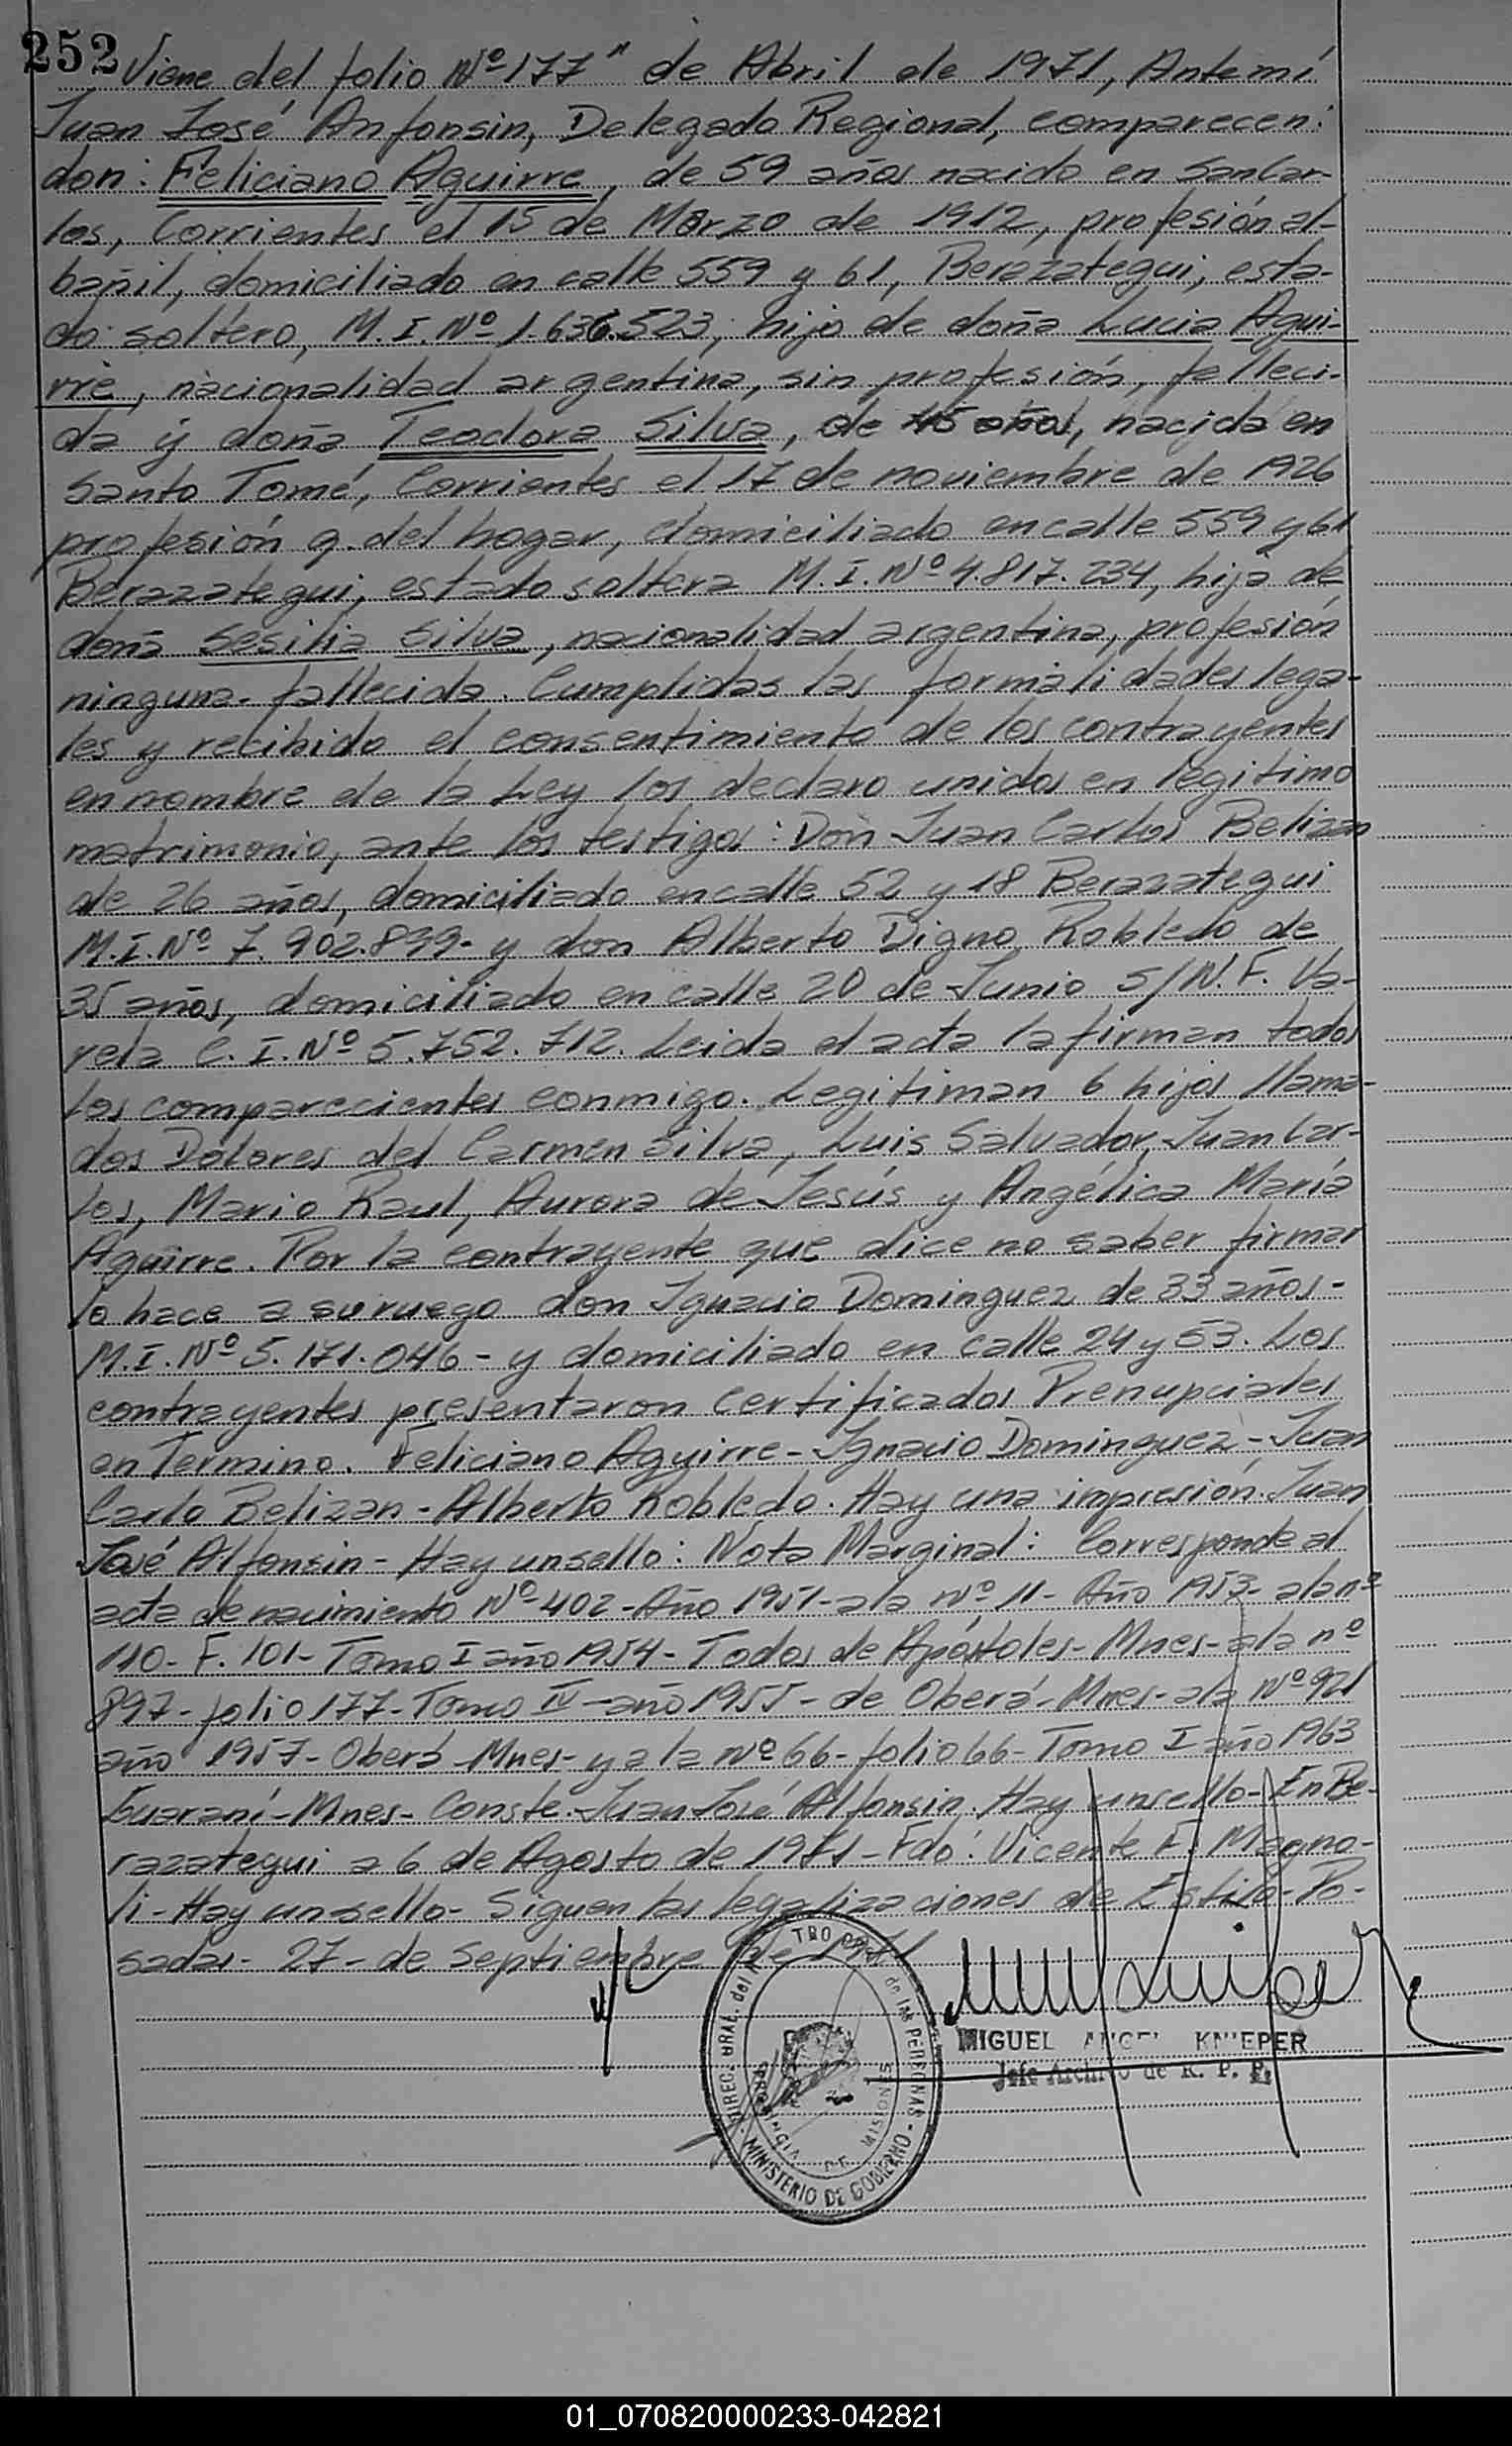 252
Viene del folio Nº 177" de Abril de 1971, Ante mí
Juan José Anfonsin, Delegado Regional, comparecen:
don: Feliciano Aguirre, de 59 años nacido en San Car-
los, Corrientes el 15 de Marzo de 1912, profesión al-
bañil, domiciliado en calle 559 y 61, Berazategui, esta-
do soltero, M.I.Nº 1.636.523, hijo de doña Lucia Agui-
rre, nacionalidad argentina, sin profesión, felleci-
da y doña Teodora Silva, de 45 años, nacida en
Santo Tomé, Corrientes el 17 de noviembre de 1926
profesión q. del hogar, domiciliado en calle 559 y 61
Berazategui, estado soltera M.I.Nº 4.817.234, hija de
doña Sesilia Silva, nacionalidad argentina, profesión
ninguna- fallecida. Cumplidas las formalidades lega-
les y recibido el consentimiento de los contrayentes
en nombre de la Ley los declaro unidos en legitimo
matrimonio, ante los testigos: Don Juan Carlos Belizan
de 26 años, domiciliado en calle 52 y 18 Berazategui
M.I.Nº 7.902.839- y don Alberto Digno Robledo de
35 años, domiciliado en calle 20 de Junio S/N. F. Va-
rela C.I.Nº 5.752.712. Leida el acta la firman todos
los comparecientes conmigo. Legitiman 6 hijos llama-
dos Dolores del Carmen Silva, Luis Salvador, Juan Car-
los, Mario Raul, Aurora de Jesús y Angélica María
Aguirre. Por la contrayente que dice no saber firmar
lo hace a su ruego don Ignacio Dominguez de 33 años-
M.I.Nº 5.171.046- y domiciliado en calle 24 y 53. Los
contrayentes presentaron Certificados Prenupciales
en Termino. Feliciano Aguirre- Ignacio Dominguez- Juan
Carlo Belizan- Alberto Robledo. Hay una impresión. Juan
José Alfonsin- Hay un sello: Nota Marginal: Corresponde al
acta de nacimiento Nº 402- Año 1951- a la Nº 11- Año 1953- a la nº
110- F. 101- Tomo I año 1954- Todos de Apóstoles- Mnes- a la nº
897- folio 177- Tomo IV- año 1955- de Oberá- Mnes- a la Nº 921
año 1957- Oberá- Mnes- y a la nº 66- folio 66- Tomo I año 1963
Guaraní- Mnes- Conste. Juan José Alfonsin. Hay un sello- En Be-
razategui a 6 de Agosto de 1971- Fdo: Vicente F. Magno-
li- Hay un sello- Siguen las legalizaciones de Estilo- Po-
sadas- 27- de Septiembre de
MIGUEL ANGEL KNIEPER
Jefe Archivo de R. P. P.
MINISTERIO DE GOBIERNO
PROVINCIA DE MISIONES
01_070820000233-042821